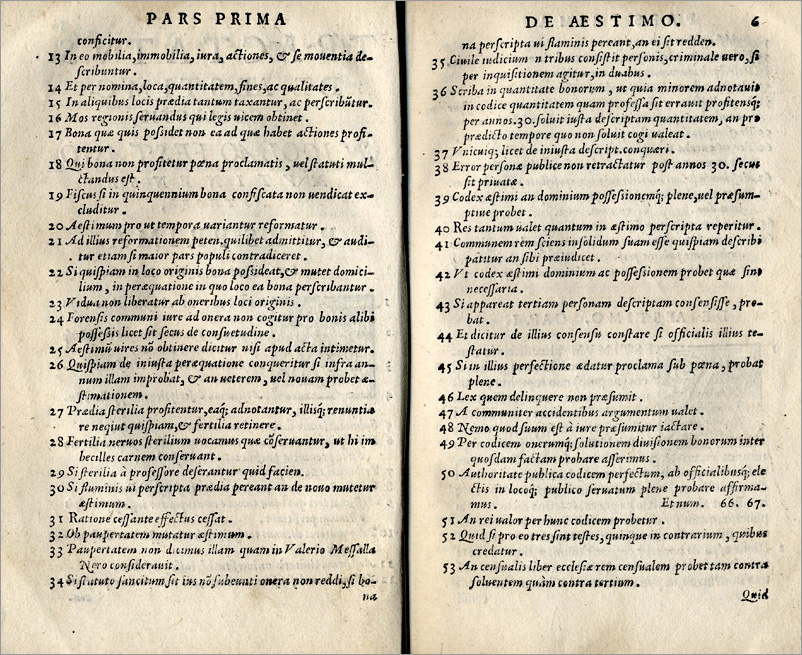 PARS PRIMA
conficitur.
13 In eo mobilia, immobilia, iura, actiones, & se mouentia de-
scribuntur.
14 Et per nomina, loca, quantitatem, fines, ac qualitates.
15 In aliquibus locis prædia tantum taxantur, ac perscribũtur.
16 Mos regionis seruandus qui legis uicem obtinet.
17 Bona quæ quis possidet non ea ad quæ habet actiones profi-
tentur.
18 Qui bona non profitetur pœna proclamatis, uel statuti mul-
ctandus est.
19 Fiscus si in quinquennium bona confiscata non uendicat ex-
cluditur.
20 Aestimum pro ut tempora uariantur reformatur.
21 Ad illius reformationem peten. quilibet admittitur, & audi-
tur etiam si maior pars populi contradiceret.
22 Si quispiam in loco originis bona possideat, & mutet domici-
lium, in peræquatione in quo loco ea bona perscribantur.
23 Vidua non liberatur ab oneribus loci originis.
24 Forensis communi iure ad onera non cogitur pro bonis alibi
possessis licet sit secus de consuetudine.
25 Aestimũ uires nõ obtinere dicitur nisi apud acta intimetur.
26 Quispiam de iniusta peræquatione conqueritur si infra an-
num illam improbat, & an ueterem, uel nouam probet æ-
stimationem.
27 Prædia sterilia profitentur, eaq; adnotantur, illisq; renuntia
re nequit quispiam, & fertilia retinere.
28 Fertilia neruos sterilium uocamus quæ cõseruantur, ut hi im
becilles carnem conseruant.
29 Si sterilia à professore deserantur quid facien.
30 Si fluminis ui perscripta prædia pereant an de nouo mutetur
æstimum.
31 Ratione cessante effectus cessat.
32 Ob paupertatem mutatur æstimum.
33 Paupertatem non dicimus illam quam in Valerio Messalla
Nero considerauit.
34 Si statuto sancitum sit ius nõ subeunti onera non reddi, si bo-
na
DE AESTIMO. 6
na perscripta ui flaminis pereant, an ei sit redden.
35 Ciuile iudicium n tribus consistit personis, criminale uero, si
per inquisitionem agitur, in duabus.
36 Scriba in quantitate bonorum, ut quia minorem adnotauit
in codice quantitatem quam professa sit errauit profitensq;
per annos. 30. soluit iusta descriptam quantitatem, an pro
prædicto tempore quo non soluit cogi ualeat.
37 Vnicuiq; licet de iniusta descript. conquæri.
38 Error personæ publice non retractatur post annos 30. secus
sit priuatæ.
39 Codex æstimi an dominium possessionemq; plene, uel præsum-
ptiue probet.
40 Res tantum ualet quantum in æstimo perscripta reperitur.
41 Communem rem sciens insolidum suam esse quispiam describi
patitur an sibi præiudicet.
42 Vt codex æstimi dominium ac possessionem probet quæ sint
necessaria.
43 Si appareat tertiam personam descriptam consensisse, pro-
bat.
44 Et dicitur de illius consensu constare si officialis illius te-
statur.
45 Si in illius perfectione ædatur proclama sub pœna, probat
plene.
46 Lex quem delinquere non præsumit.
47 A communiter accidentibus argumentum ualet.
48 Nemo quod suum est à iure præsumitur iactare.
49 Per codicem onerumq; solutionem diuisionem bonorum inter
quosdam factam probare asserimus.
50 Authoritate publica codicem perfectum, ab officialibusq; ele
ctis in locoq; publico seruatum plene probare affirma-
mus. Et num. 66. 67.
51 An rei ualor per hunc codicem probetur.
52 Quid si pro eo tres sint testes, quinque in contrarium, quibus
credatur.
53 An censualis liber ecclesiæ rem censualem probet tam contra
soluentem quàm contra tertium.
Quid